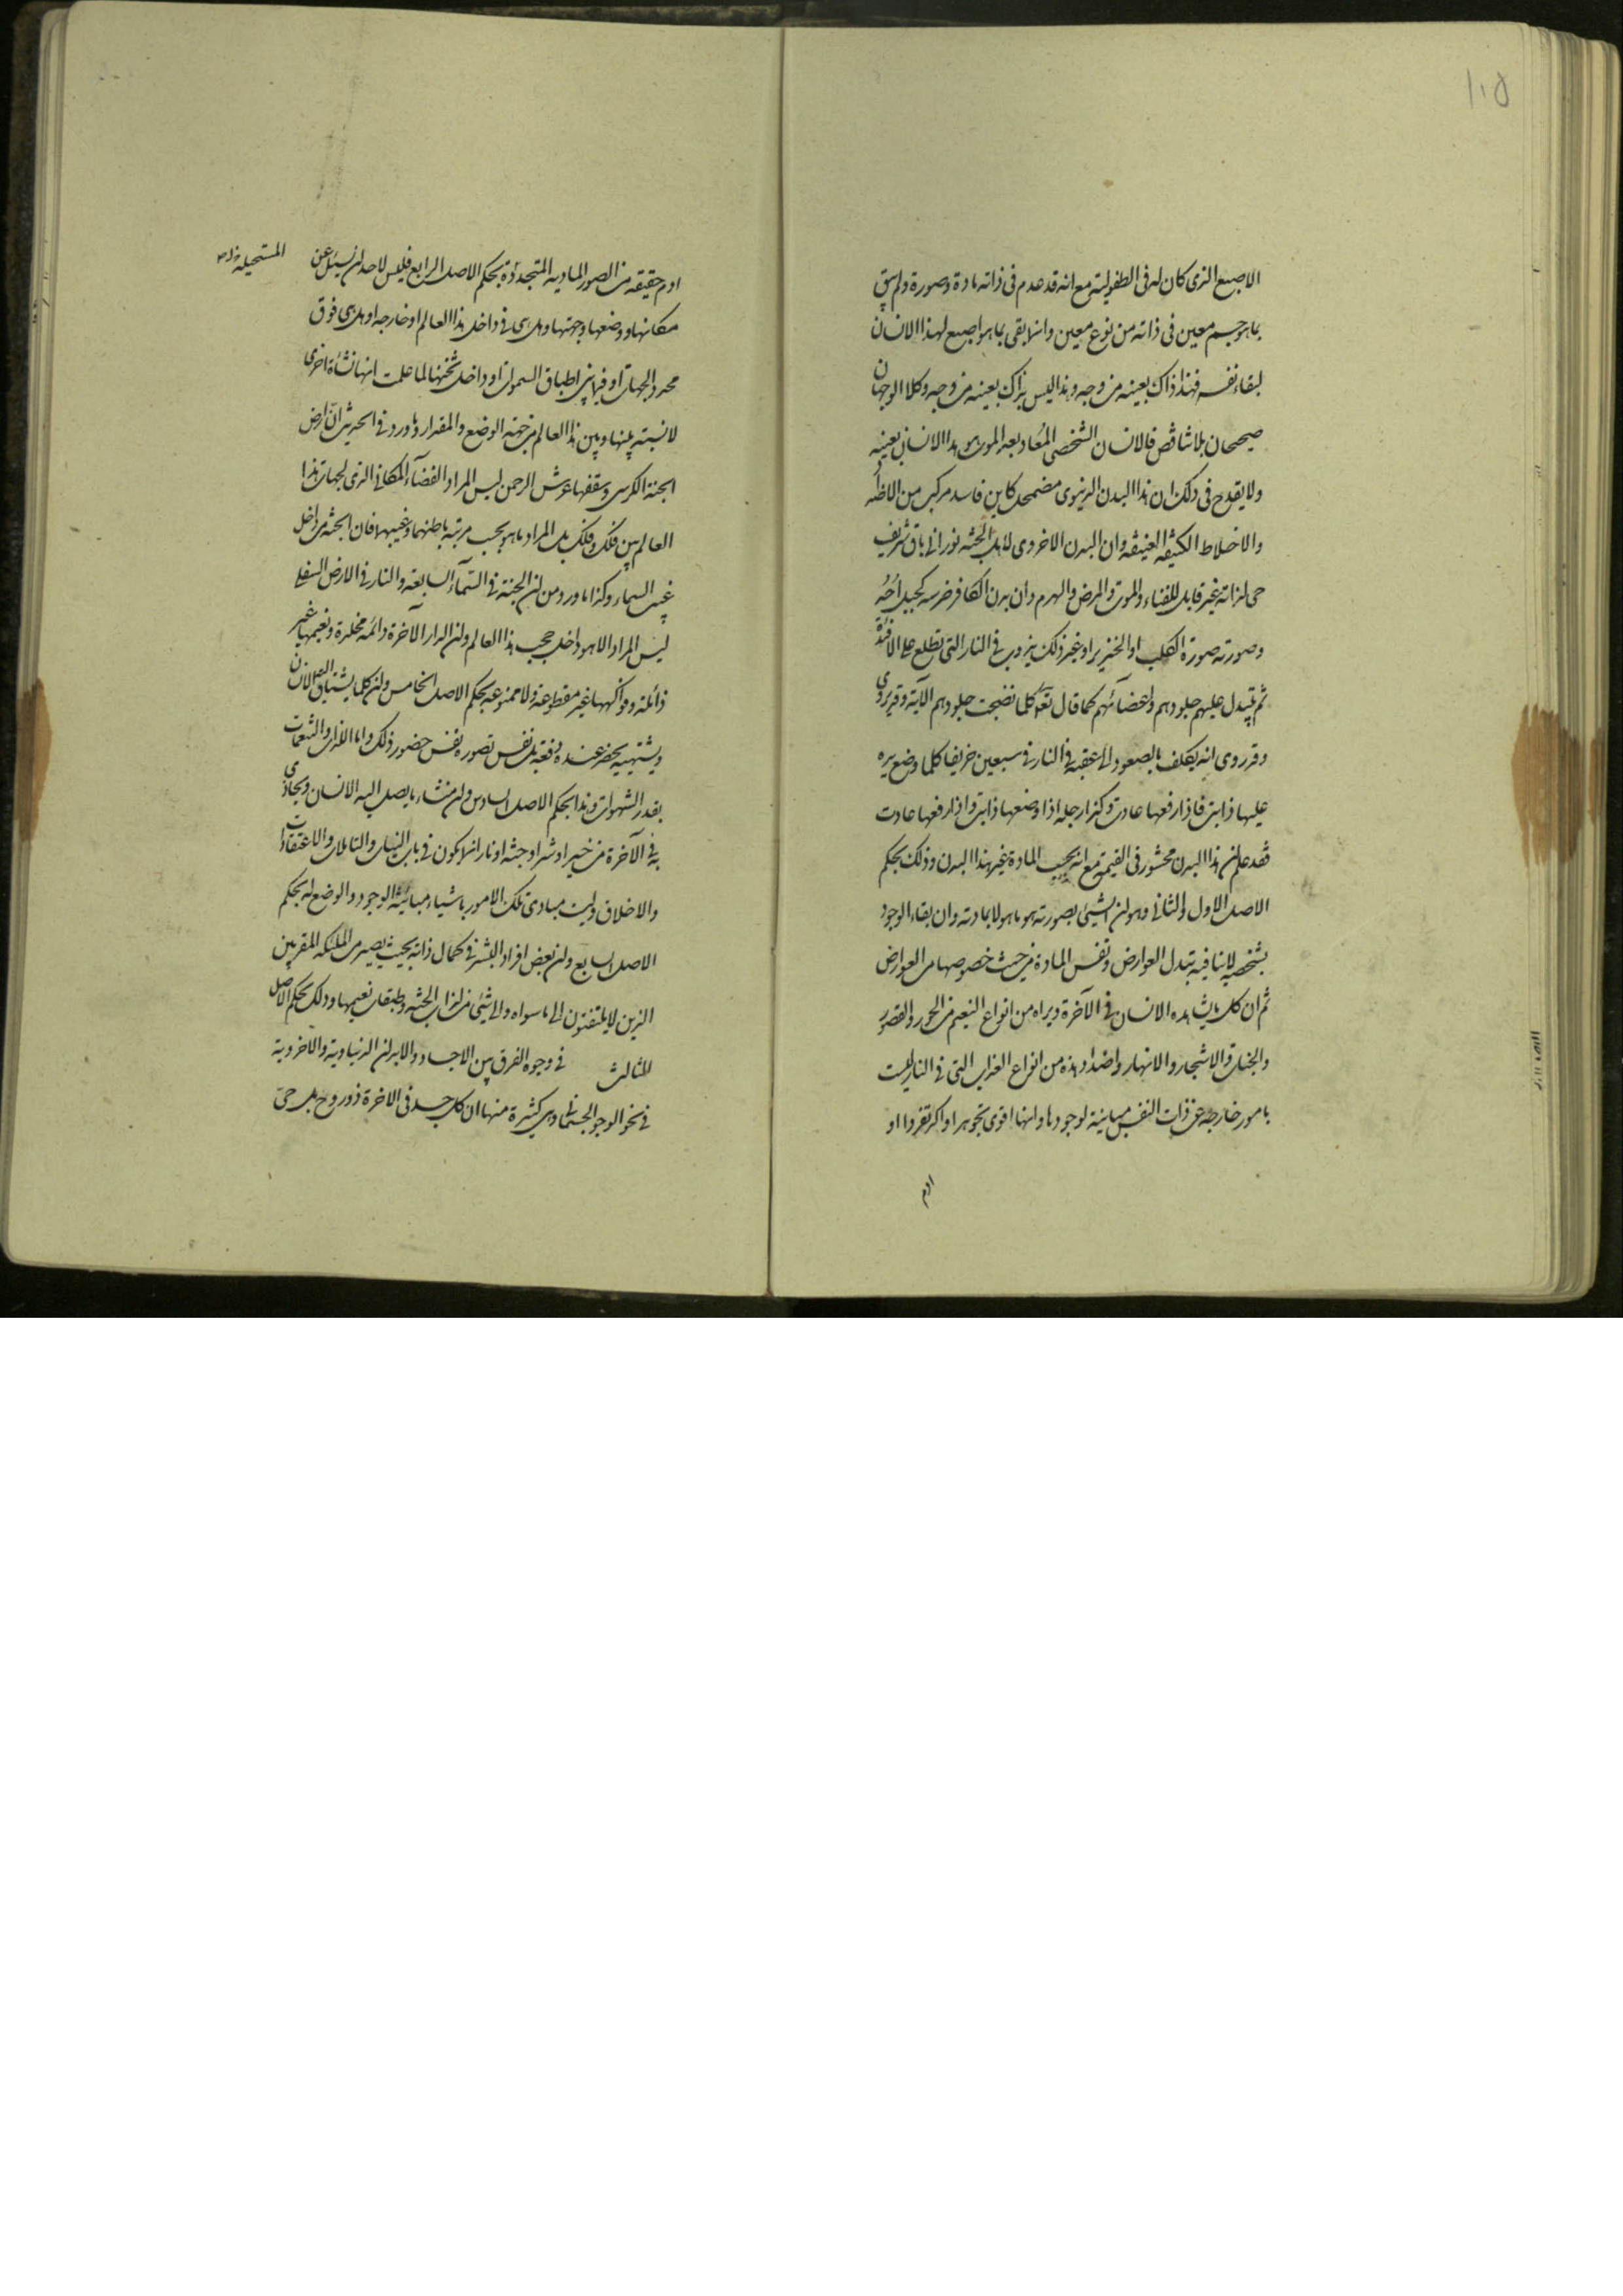 ١٠٥
الاصبع الذى كان له فى الطفولية مع انه قد عدم فى ذاته مادة وصورة ولم يبق
بما هو جسم معين فى ذاته من نوع معين وانما بقى بما هو اصبع لهذا الانسان
لبقاء نفسه فهذا ذاك بعينه من وجه وهذا ليس بذاك بعينه من وجه وكلا الوجهان
صحيحان بلا تناقض فالانسان الشخصى المُعاد بعد الموت هو هذا الانسان بعينه
ولا يقدح فى ذلك ان هذا البدن الدنيوى مضمحل كاين فاسد مركب من الاضداد
والاخلاط الكثيفة العفنة وان البدن الاخروى لاهل الجنة نورانى باق شريف
حى لذاته غير قابل للفناء والموت والمرض والهرم وان بدن الكافر ضرسه كجبل اُحُد
وصورته صورة الكلب او الخنزير او غير ذلك يذوب فى النار التى تطلع على الافئدة
ثم يتبدل عليهم جلودهم واعضائهم كما قال تعه كلما نضجت جلودهم الآية وقد روى
وقد روى انه يكلف بالصعود الى عقبة فى النار فى سبعين خريفا كلما وضع يده
عليها ذابت فاذا رفعها عادت وكذا رجله اذا وضعها ذابت واذا رفعها عادت
فقد علم ان هذا البدن محشور فى القيمة مع انه بحسب المادة غير هذا البدن وذلك بحكم
الاصل الاول والثانى وهو ان الشيئ بصورته هو ما هو لا بمادته وان بقاء الوجود
بشخصه لا ينافيه تبدل العوارض ونفس المادة من حيث خصوصها من العوارض
ثم ان كل ما يشاهده الانسان فى الآخرة ويراه من انواع النعيم من الحور والقصور
والجنات والاشجار والانهار واضداد هذه من انواع العذاب التى فى النار ليست
بامور خارجة عن ذات النفس مباينة لوجودها وانها اقوى تجوهرا واكد تقررا او
ادم
ادم حقيقة من الصور المادية المتجددة بحكم الاصل الرابع فليس لاحد ان يسئل عن
المستحيلة
مكانها ووضعها وجهتها وهل هى فى داخل هذا العالم او خارجه او هل هى فوق
محدد الجهات او فيما بين اطباق السموات او داخل ثخنها لما علمت انها نشأة اخرى
لا نسبة بينها وبين هذا العالم من جهة الوضع والمقدار وما ورد فى الحديث انّ ارض
الجنة الكرسى وسقفها عرش الرحمن ليس المراد الفضآء المكانى الذى لجهات هذا
العالم بين فلك وفلك بل المراد ما هو بحسب مرتبة باطنهما وغيبهما فان الجنة فى داخل
غيب السماء وكذا ما ورد من ان الجنة فى السّمآء السابعة والنار فى الارض السفلى
ليس المراد الا ما هو داخل حجب هذا العالم وان الدار الآخرة دائمة مخلدة ونعيمها غير
زائلة وفواكهها غير مقطوعة ولا ممنوعة بحكم الاصل الخامس وان كلما يشتاق اليه الانسان
ويشتهيه يحضر عنده دفعة بل نفس تصوره نفس حضور ذلك واما اللذات والتنعمات
بقدر الشهوات وهذا بحكم الاصل السادس وان منشاء ما يصل اليه الانسان ويجازى
به فى الآخرة من خير او شر او جنة او نار انما يكون فى باب النيات والتاملات والاعتقادات
والاخلاق وليست مبادى تلك الامور باشياء مباينة الوجود والوضع له بحكم
الاصل السابع وان بعض افراد البشر فى كمال ذاته بحيث يصير من الملئكة المقربين
الذين لا يلتفتون الى ما سواه ولا الى شيئ من لذات الجنة وطبقات نعيمها وذلك بحكم الاصل
الثالث    فى وجوه الفرق بين الاجساد والابدان الدنياوية والاخروية
فى نحو الوجود الجسمانى وهى كثيرة منها ان كل جسد فى الاخرة ذو روح بل حىّ